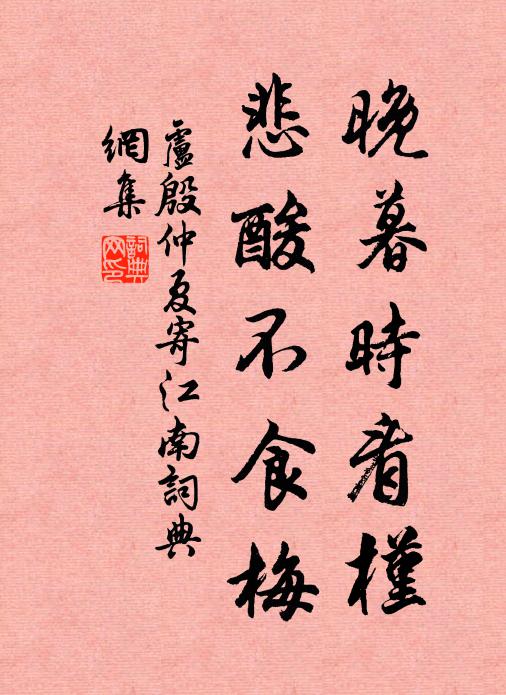 晚暮時看槿
悲酸不食梅
盧殷仲夏寄江南詞典
網集
詞典
网印